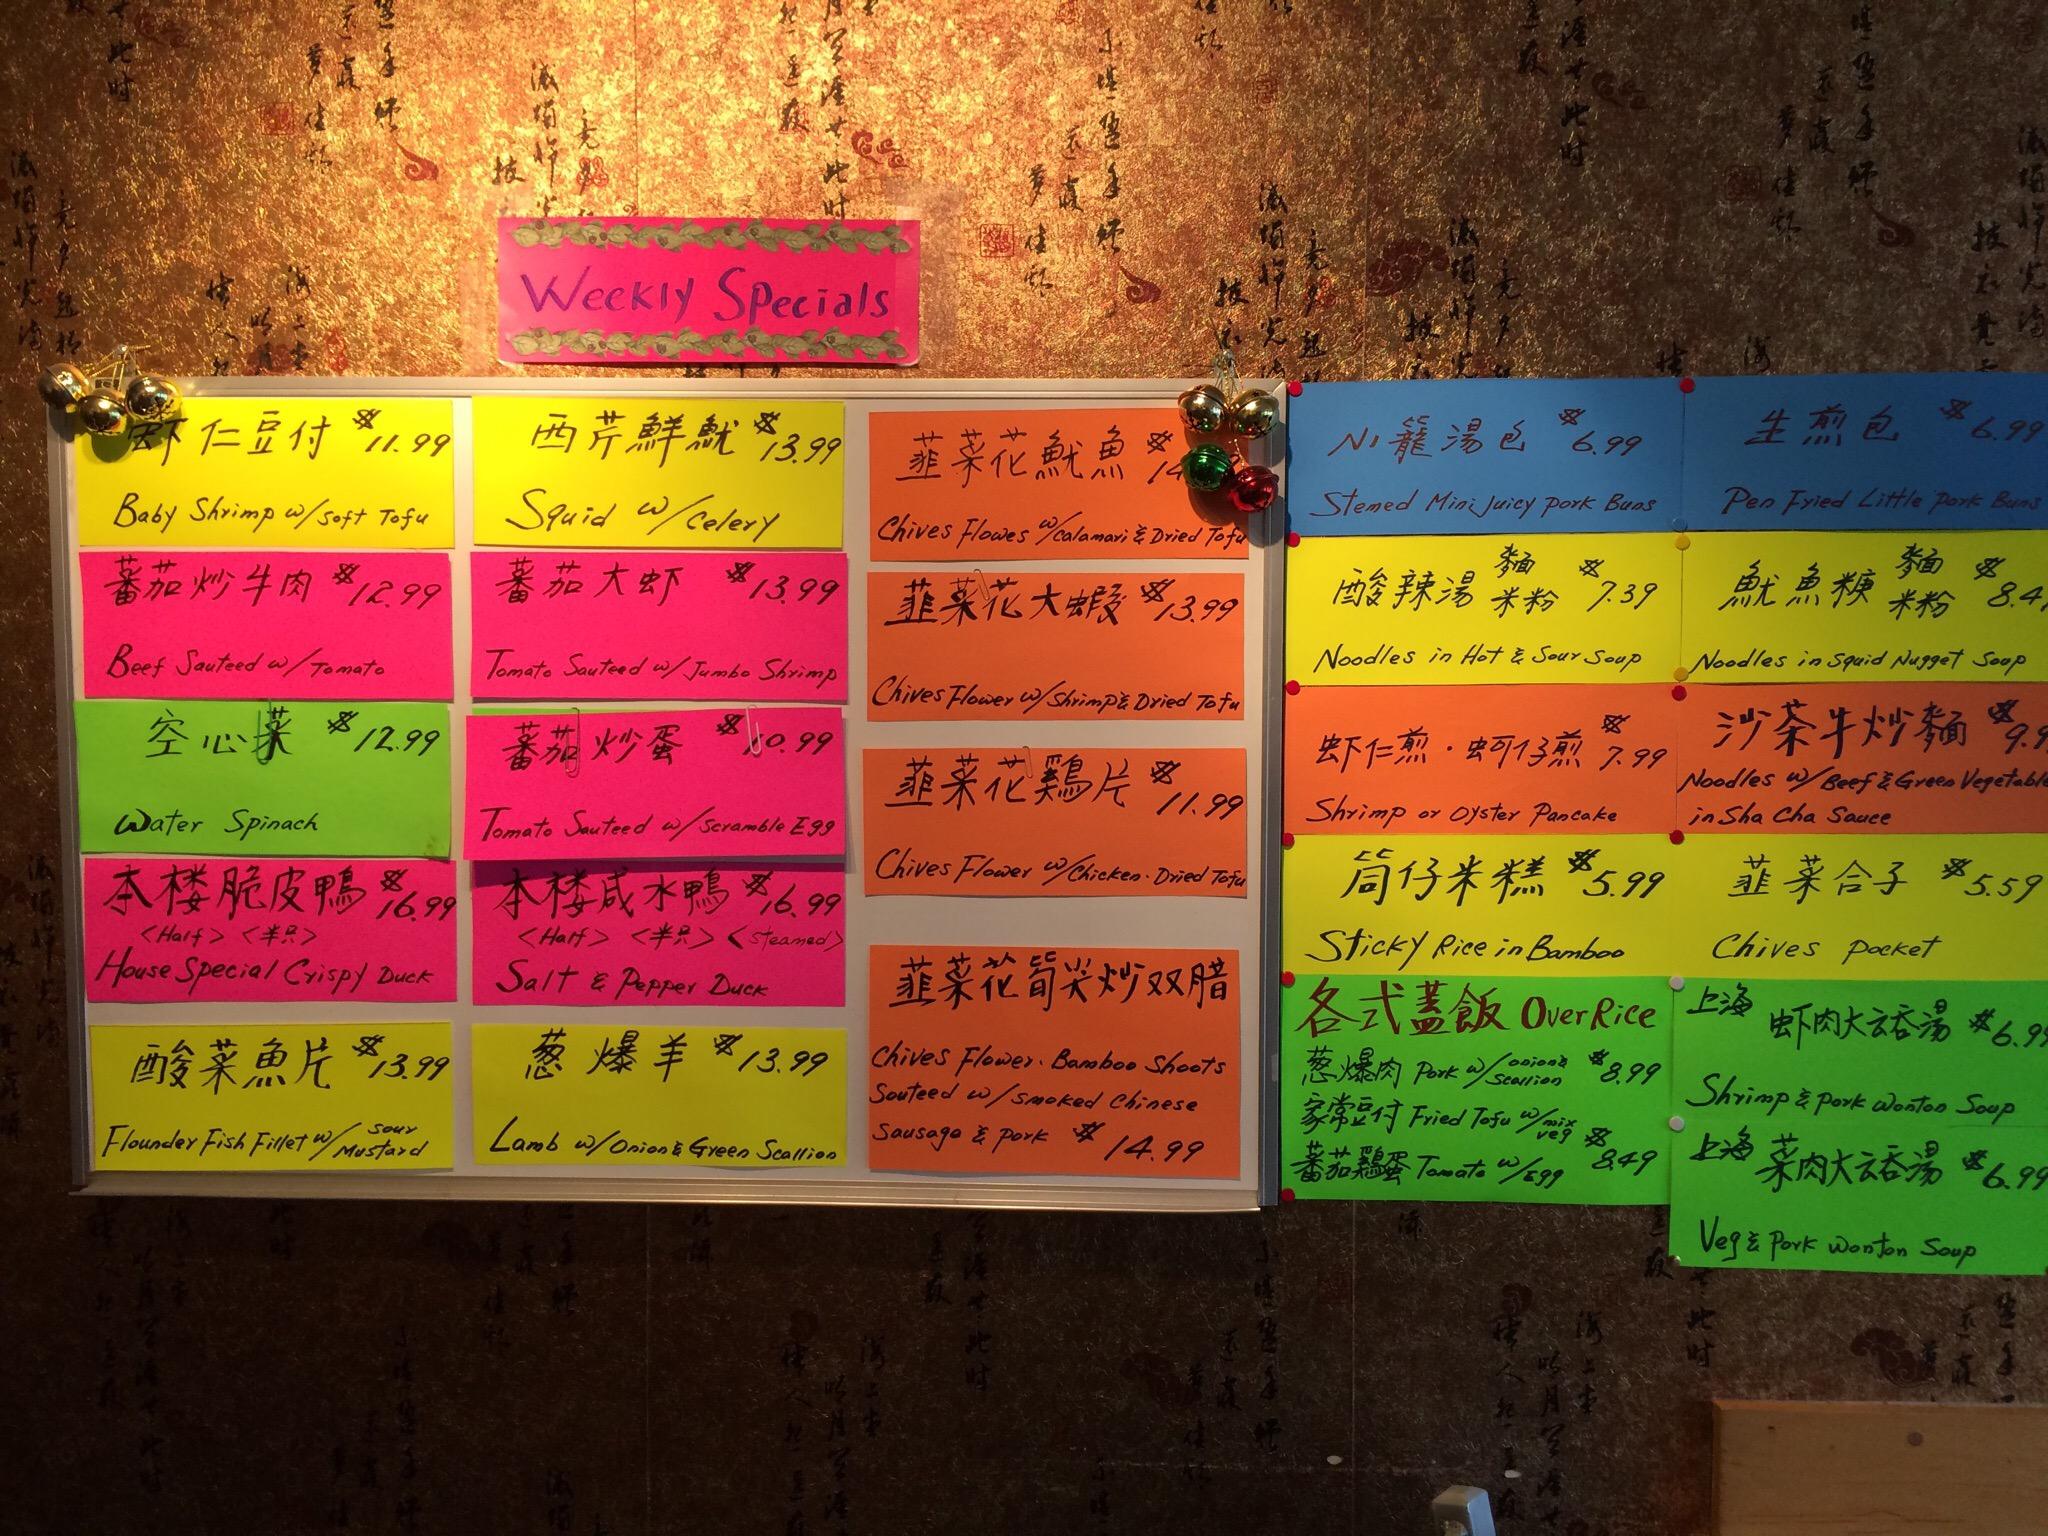 Weekly Specials
虾仁豆付 $11.99
Baby Shrimp w/soft Tofu
蕃茄炒牛肉 $12.99
Beef Sauteed w/Tomato
空心菜 $12.99
Water Spinach
本楼脆皮鴨 $16.99
<Half> <半只>
House Special Crispy Duck
酸菜魚片 $13.99
Flounder Fish Fillet w/ sour Mustard
西芹鮮魷 $13.99
Squid w/celery
蕃茄大虾 $13.99
Tomato Sauteed w/Jumbo Shrimp
蕃茄炒蛋 $10.99
Tomato Sauteed w/scramble Egg
本楼咸水鴨 $16.99
<Half> <半只> <steamed>
Salt & Pepper Duck
葱爆羊 $13.99
Lamb w/Onion & Green Scallion
韮菜花魷魚 $14
Chives Flowes w/calamari & Dried Tofu
韮菜花大蝦 $13.99
Chives Flower w/Shrimp & Dried Tofu
韮菜花鶏片 $11.99
Chives Flower w/Chicken. Dried Tofu
韮菜花筍尖炒双腊
Chives Flower. Bamboo Shoots
Souteed w/ smoked Chinese
Sausage & pork $14.99
小籠湯包 $6.99
Stemed Mini Juicy pork Buns
酸辣湯 麵 米粉 $7.39
Noodles in Hot & Sour Soup
虾仁煎·蚵仔煎 $7.99
Shrimp or Oyster Pancake
筒仔米糕 $5.99
Sticky Rice in Bamboo
各式蓋飯 Over Rice
葱爆肉 Pork w/onion & scallion $8.99
家常豆付 Fried Tofu w/mix veg $8.49
蕃茄鶏蛋 Tomato w/egg
生煎包 $6.99
Pen Fried Little pork Buns
魷魚羹 麵 米粉 $8.4
Noodles in squid Nugget Soup
沙茶牛炒麵 $9.9
Noodles w/Beef & Green Vegetable
in Sha Cha Sauce
韮菜合子 $5.59
Chives pocket
上海 虾肉大云吞湯 $6.99
Shrimp & pork wonton Soup
上海 菜肉大云吞湯 $6.99
Veg & pork wonton Soup